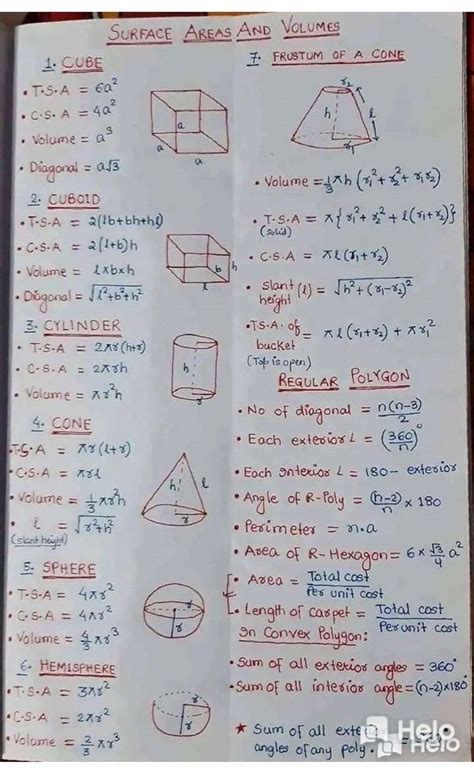 SURFACE AREAS AND VOLUMES
1. CUBE
• T.S.A = 6a²
• C.S.A = 4a²
• Volume = a³
• Diagonal = a√3
a
a
a
2. CUBOID
• T.S.A = 2(lb+bh+hl)
• C.S.A = 2(l+b)h
• Volume = l×b×h
• Diagonal = √l²+b²+h²
b
h
l
3. CYLINDER
• T.S.A = 2πr(h+r)
• C.S.A = 2πrh
• Volume = πr²h
h
r
4. CONE
• T.S.A = πr(l+r)
• C.S.A = πrl
• Volume = 1/3 πr²h
• l = √r²+h²
(slant height)
h
l
r
5. SPHERE
• T.S.A = 4πr²
• C.S.A = 4πr²
• Volume = 4/3 πr³
r
6. HEMISPHERE
• T.S.A = 3πr²
• C.S.A = 2πr²
• Volume = 2/3 πr³
r
7. FRUSTUM OF A CONE
r₂
h
l
r₁
• Volume = 1/3 πh (r₁²+r₂²+r₁r₂)
• T.S.A = π{r₁²+r₂²+l(r₁+r₂)}
(solid)
• C.S.A = πl(r₁+r₂)
• slant height (l) = √h²+(r₁-r₂)²
• TSA of bucket = πl(r₁+r₂) + πr₁²
(Top is open)
REGULAR POLYGON
• No of diagonal = n(n-3)/2
• Each exterior L = (360/n)°
• Each Interior L = 180- exterior
• Angle of R-Poly = (n-2)/n × 180
• Perimeter = n.a
• Area of R-Hexagon = 6 × √3/4 a²
• Area = Total cost/Per unit cost
• Length of carpet = Total cost/Per unit cost
In Convex Polygon:
• Sum of all exterior angles = 360°
• Sum of all interior angle = (n-2)×180°
★ Sum of all
angles of any poly.
Helo
Helo